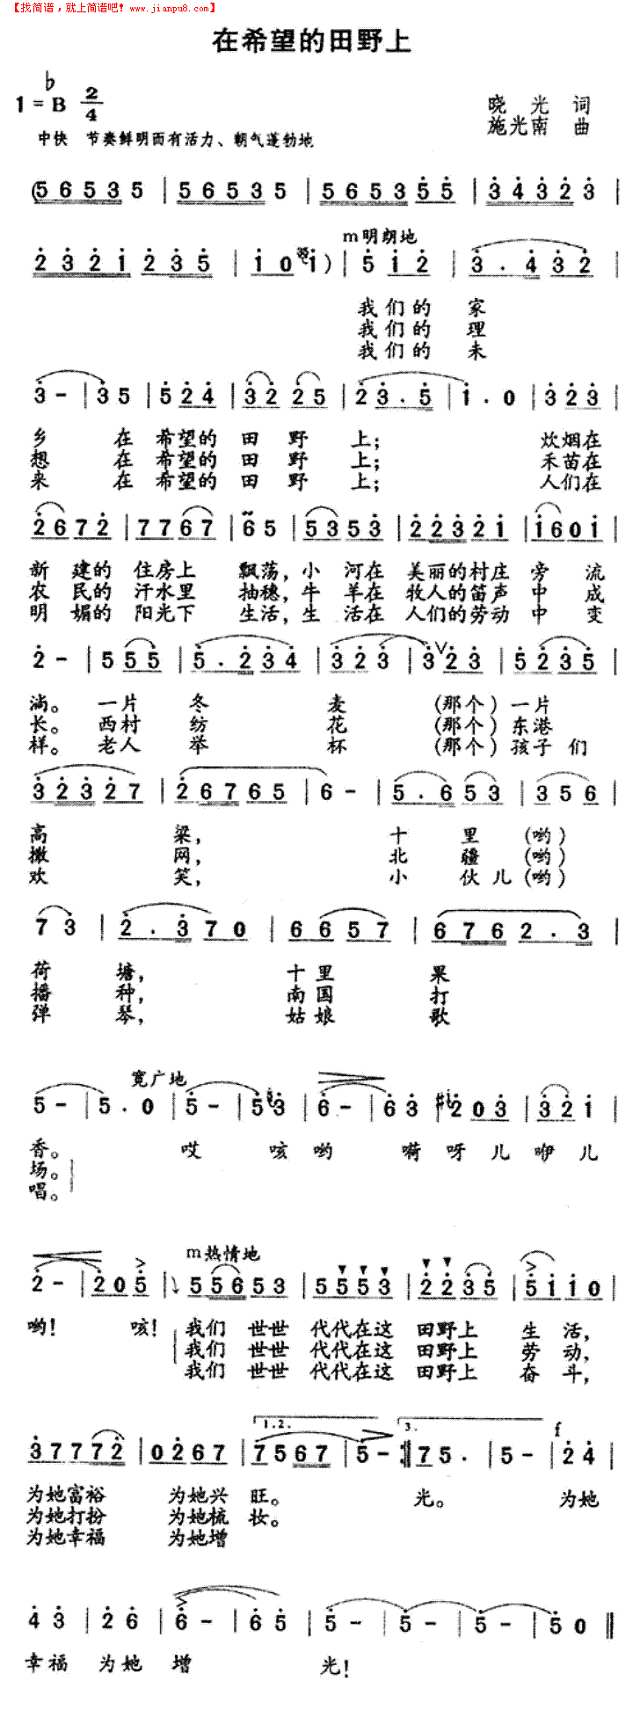 【找简谱，就上简谱吧! www.jianpu8.com】
在希望的田野上
1=♭B 2/4
晓光 词
中快 节奏鲜明而有活力、朝气蓬勃地
施光南 曲
(56535 | 56535 | 5653555 | 34323 |
m明朗地
2321235 | i0 i) | 5i2 | 3.432 |
我们的 家
我们的 理
我们的 未
3- | 35 | 524 | 3225 | 23.5 | i.0 | 323 |
乡 在 希望的 田 野 上; 炊烟在
想 在 希望的 田 野 上; 禾苗在
来 在 希望的 田 野 上; 人们在
2672 | 7767 | 65 | 5353 | 22321 | i60i |
新 建的 住房上 飘荡, 小 河在 美丽的村庄 旁 流
农 民的 汗水里 抽穗, 牛 羊在 牧人的笛声 中 成
明 媚的 阳光下 生活, 生 活在 人们的劳动 中 变
2- | 555 | 5.234 | 323 | 3∨23 | 5235 |
淌。 一片 冬 麦 (那个) 一片
长。 西村 纺 花 (那个) 东港
样。 老人 举 杯 (那个) 孩子 们
32327 | 26765 | 6- | 5.653 | 356 |
高 粱, 十 里 (哟)
撒 网, 北 疆 (哟)
欢 笑, 小 伙儿 (哟)
73 | 2.370 | 6657 | 6762.3 |
荷 塘, 十里 果
播 种, 南国 打
弹 琴, 姑娘 歌
宽广地
5- | 5.0 | 5- | 53 | 6- | 63 | 203 | 321 |
香。 哎 咳哟 嗬 呀 儿 咿 儿
场。
唱。
m热情地
2- | 205 | 555653 | 5553 | 2235 | 5ii0 |
哟! 咳! 我们 世世 代代在这 田野上 生 活,
我们 世世 代代在这 田野上 劳 动,
我们 世世 代代在这 田野上 奋 斗,
1.2.
3.
f
37772 | 0267 | 7567 | 5- :‖ 75. | 5- | 24 |
为她富裕 为她兴 旺。 光。 为她
为她打扮 为她梳 妆。
为她幸福 为她增
43 | 26 | 6- | 65 | 5- | 5- | 5- | 50 ‖
幸福 为她 增 光!